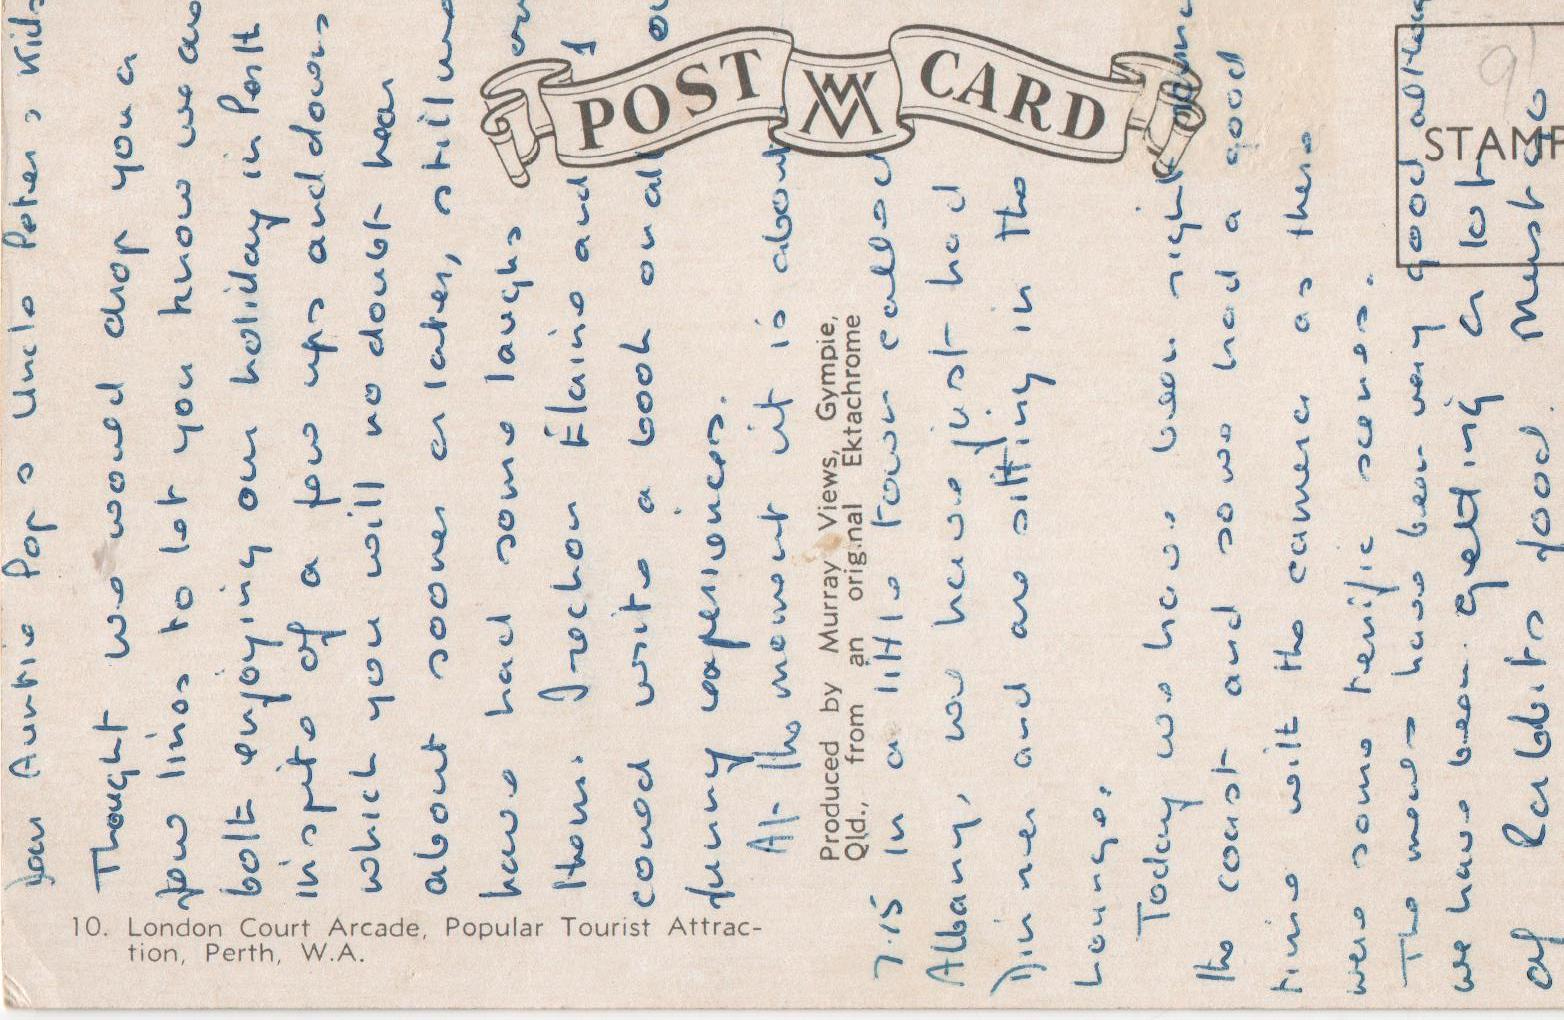 POST CARD
STAMP
10. London Court Arcade, Popular Tourist Attrac-
tion, Perth, W.A.
Produced by Murray Views, Gympie,
Qld., from an original Ektachrome
Dear Auntie Pop & Uncle Peter & Kids
Thought we would drop you a
few lines to let you know we are
both enjoying our holiday in Perth
inspite of a few ups and downs
which you will no doubt hear
about sooner or later, still we
have had some laughs over
them. I rechon Elaine and I
coued write a book on all our
funny experiences.
At the moment it is about
7.15 in a little town called
Albany, we have just had
Dinner and are sitting in the
Lounge.
Today we have been right
the coast and so we had a good
time with the camera as there
were some terific scenes.
The meals have been very good altho
we have been getting a lot
of Rabbits food. Must go